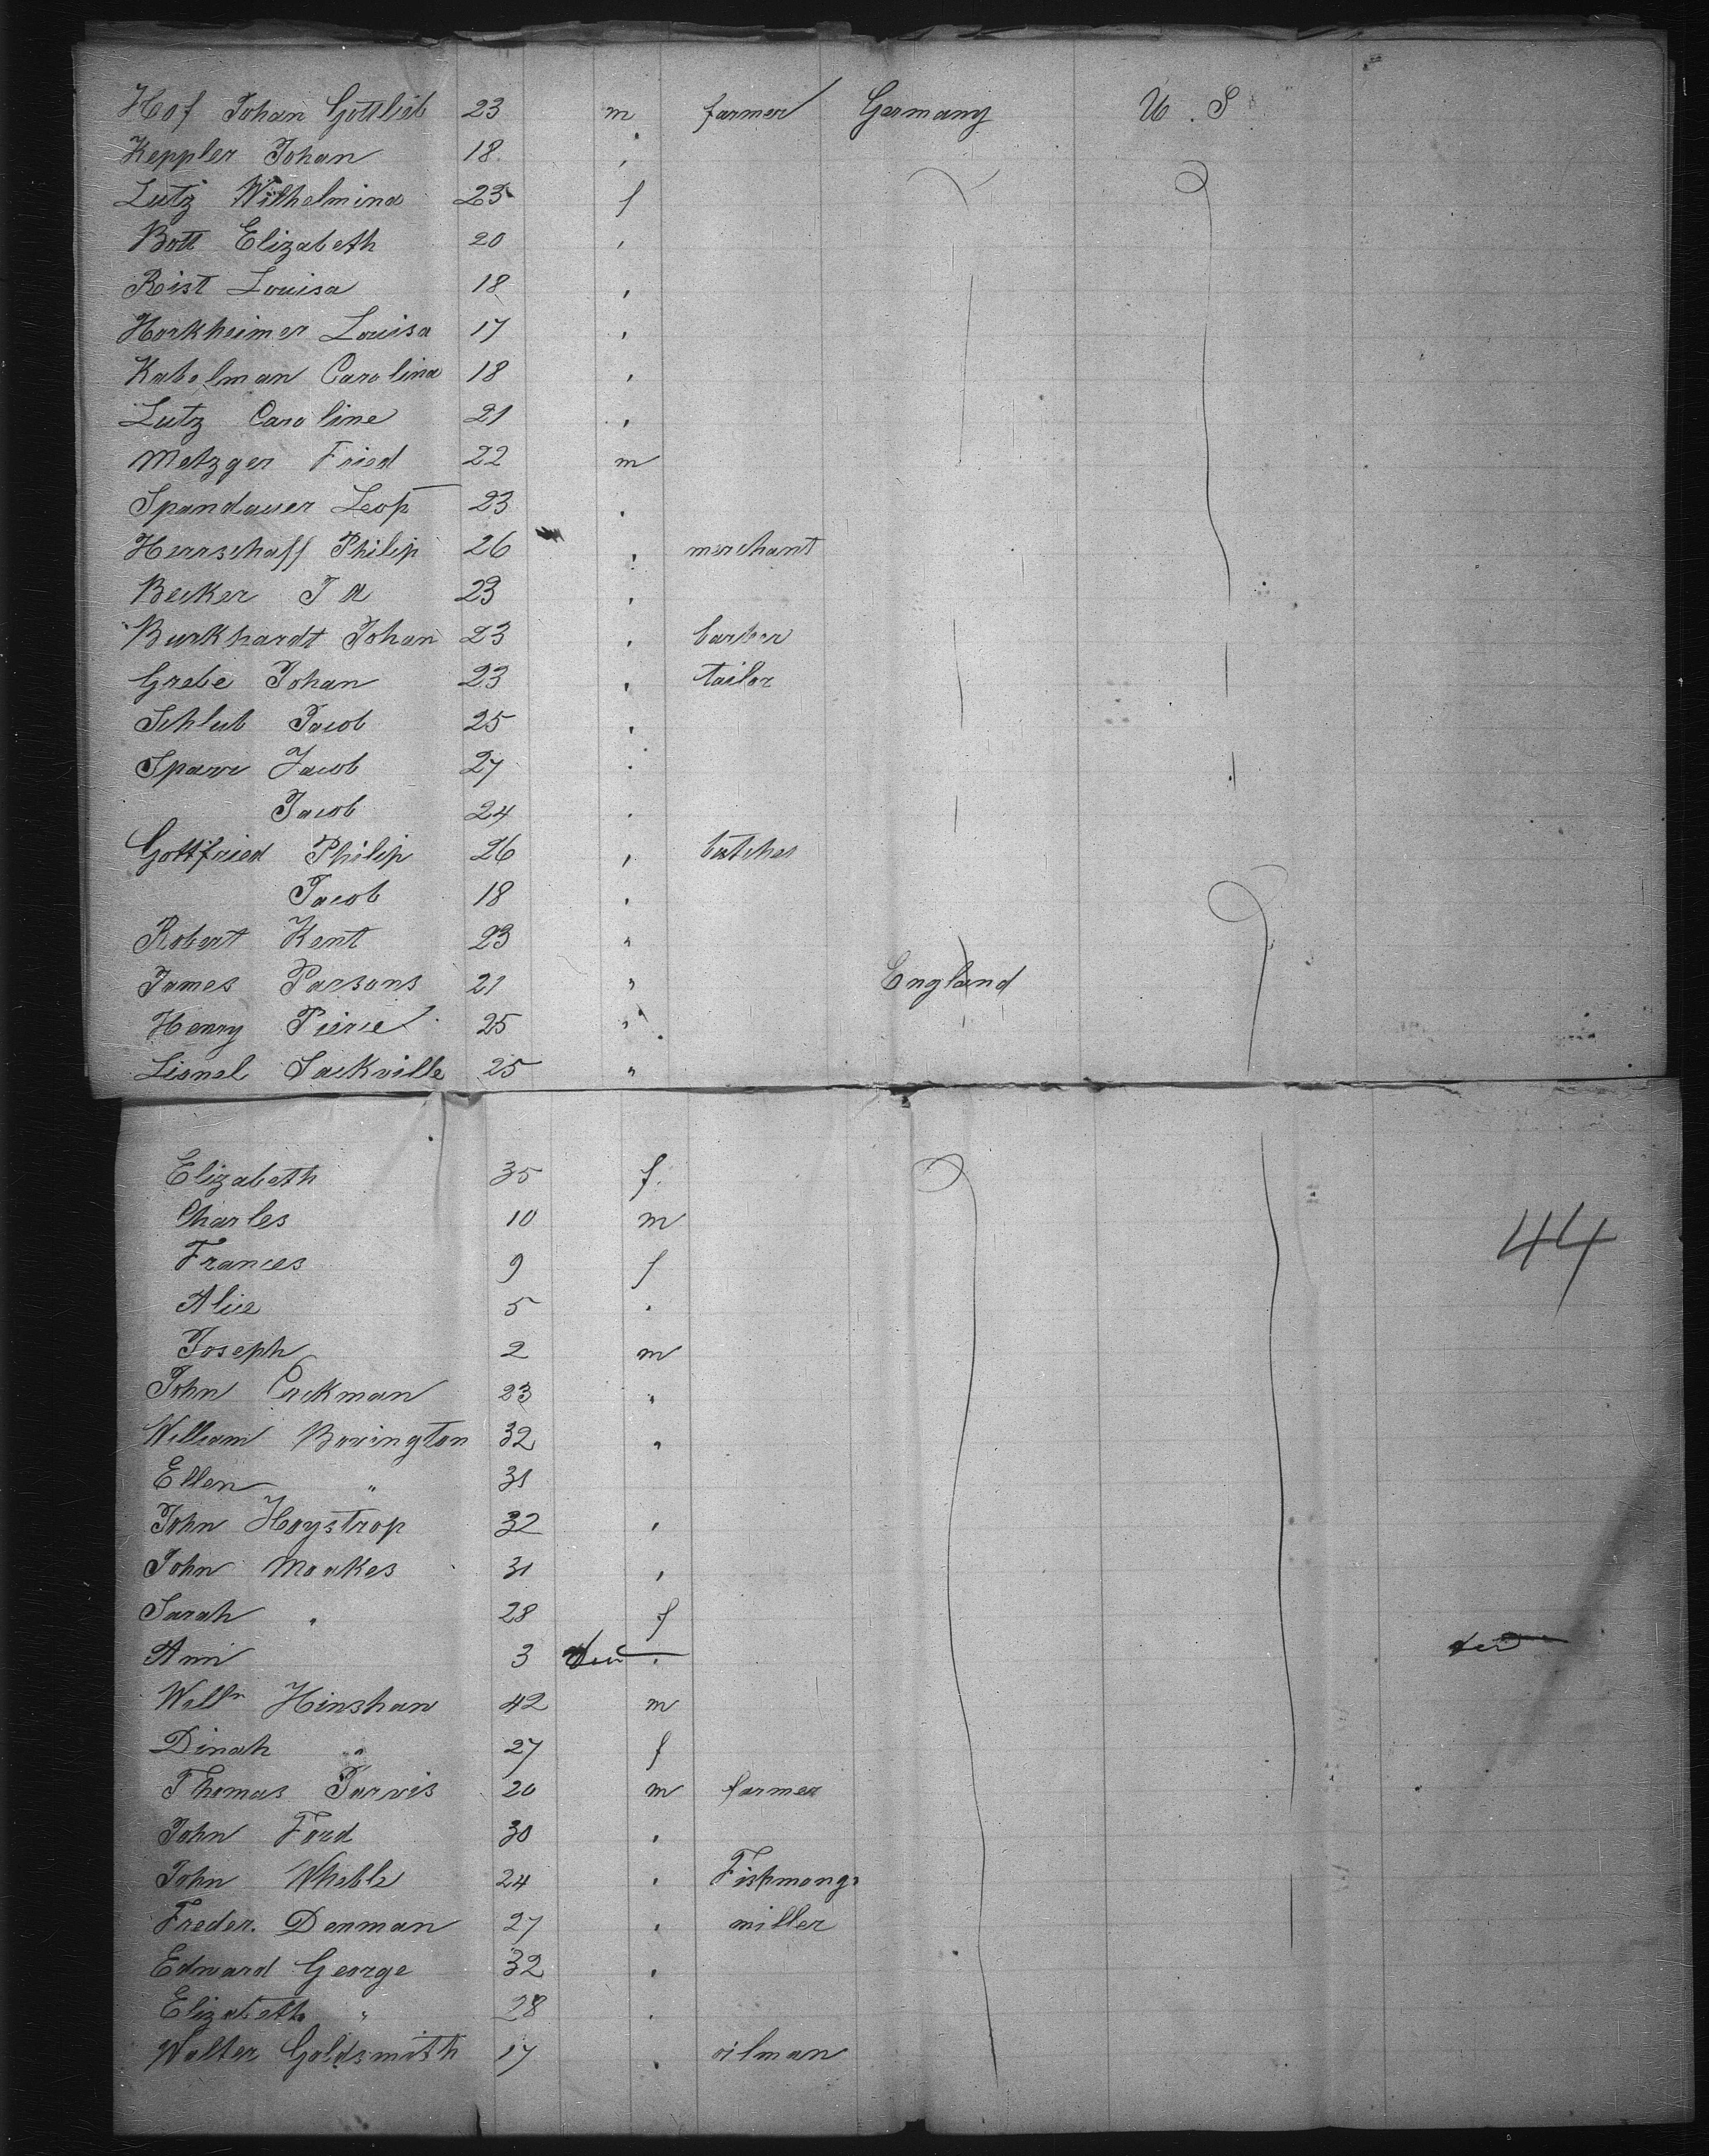 Hof Johan Gottlieb 23 m farmer Germany U. S.
Keppler Johan 18 "
Lutz Wilhelmina 23 f
Bott Elizabeth 20 "
Rist Louisa 18 "
Horkheimer Louisa 17 "
Kabelman Carolina 18 "
Lutz Caroline 21 "
Metzger Fried 22 m
Spandauer Leop 23 "
Herrschaff Philip 26 " merchant
Becker J A 23 "
Burkhardt Johan 23 " barber
Grebe Johan 23 " tailor
Schlub Jacob 25 "
Jacob 27 "
Jacob 24 "
Gottfried Philip 26 " butcher
Jacob 18 "
Robert Kent 23 "
James Parsons 21 " England
Henry Pierce 25 "
Lionel Sackville 25 "
Elizabeth 35 f.
Charles 10 m
Frances 9 f
Alice 5 "
Joseph 2 m
John 23 "
William Bovington 32 "
Ellen " 31
John Hoystrop 32 "
John Moakes 31 "
Sarah " 28 f
Ann 3 "
Willm Hinshaw 42 m
Dinah " 27 f
Thomas Jarvis 20 m farmer
John Ford 30 "
John Wheble 24 " Fishmongr
Freder. Denman 27 " miller
Edward George 32 "
Elizabeth " 28 "
Walter Goldsmith 17 " oilman
44